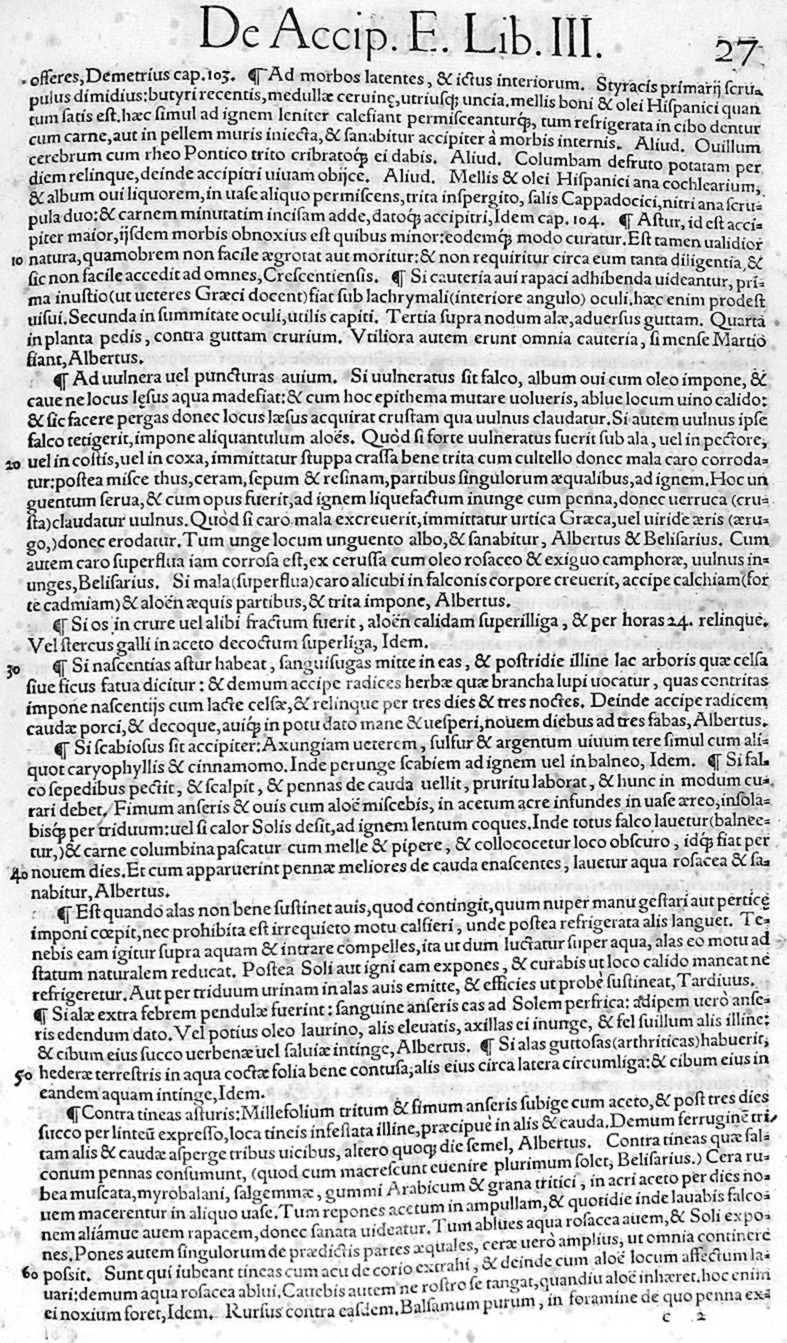 De Accip. E. Lib. III. 27
offeres, Demetrius cap. 103. ¶ Ad morbos latentes, & ictus interiorum. Styracis primarij scru-
pulus dimidius: butyri recentis, medullæ ceruinę, utriusq; uncia. mellis boni & olei Hispanici quan
tum satis est. hæc simul ad ignem leniter calefiant permisceanturq́;, tum refrigerata in cibo dentur
cum carne, aut in pellem muris iniecta, & sanabitur accipiter à morbis internis. Aliud. Ouillum
cerebrum cum rheo Pontico trito cribratoq́; ei dabis. Aliud. Columbam defruto potatam per
diem relinque, deinde accipitri uiuam obijce. Aliud. Mellis & olei Hispanici ana cochlearium,
& album oui liquorem, in uase aliquo permiscens, trita inspergito, salis Cappadocici, nitri ana scru-
pula duo: & carnem minutatim incisam adde, datoq́; accipitri, Idem cap. 104. ¶ Astur, id est acci-
piter maior, ijsdem morbis obnoxius est quibus minor: eodemq́; modo curatur. Est tamen ualidior
10 natura, quamobrem non facile ægrotat aut moritur: & non requiritur circa eum tanta diligentia, &
sic non facile accedit ad omnes, Crescentiensis. ¶ Si cauteria aui rapaci adhibenda uideantur, pri-
ma inustio (ut ueteres Græci docent) fiat sub lachrymali (interiore angulo) oculi, hæc enim prodest
uisui. Secunda in summitate oculi, utilis capiti. Tertia supra nodum alæ, aduersus guttam. Quarta
in planta pedis, contra guttam crurium. Vtiliora autem erunt omnia cauteria, si mense Martio
fiant, Albertus.
¶ Ad uulnera uel puncturas auium. Si uulneratus sit falco, album oui cum oleo impone, &
caue ne locus lęsus aqua madefiat: & cum hoc epithema mutare uolueris, ablue locum uino calido:
& sic facere pergas donec locus læsus acquirat crustam qua uulnus claudatur. Si autem uulnus ipse
falco tetigerit, impone aliquantulum aloës. Quòd si forte uulneratus fuerit sub ala, uel in pectore,
20 uel in costis, uel in coxa, immittatur stuppa crassa bene trita cum cultello donec mala caro corroda-
tur: postea misce thus, ceram, sepum & resinam, partibus singulorum æqualibus, ad ignem. Hoc un
guentum serua, & cum opus fuerit, ad ignem liquefactum inunge cum penna, donec uerruca (cru-
sta) claudatur uulnus. Quòd si caro mala excreuerit, immittatur urtica Græca, uel uiride æris (æru-
go,) donec erodatur. Tum unge locum unguento albo, & sanabitur, Albertus & Belisarius. Cum
autem caro superflua iam corrosa est, ex cerussa cum oleo rosaceo & exiguo camphoræ, uulnus in-
unges, Belisarius. Si mala (superflua) caro alicubi in falconis corpore creuerit, accipe calchiam (for
te cadmiam) & aloën æquis partibus, & trita impone, Albertus.
¶ Si os in crure uel alibi fractum fuerit, aloën calidam superilliga, & per horas 24. relinque.
Vel stercus galli in aceto decoctum superliga, Idem.
30 ¶ Si nascentias astur habeat, sanguisugas mitte in eas, & postridie illine lac arboris quæ celsa
siue ficus fatua dicitur: & demum accipe radices herbæ quæ brancha lupi uocatur, quas contritas
impone nascentijs cum lacte celsæ, & relinque per tres dies & tres noctes. Deinde accipe radicem
caudæ porci, & decoque, auiq́; in potu dato mane & uesperi, nouem diebus ad tres fabas, Albertus.
¶ Si scabiosus sit accipiter: Axungiam ueterem, sulfur & argentum uiuum tere simul cum ali-
quot caryophyllis & cinnamomo. Inde perunge scabiem ad ignem uel in balneo, Idem. ¶ Si fal-
co sepedibus pectit, & scalpit, & pennas de cauda uellit, pruritu laborat, & hunc in modum cu-
rari debet. Fimum anseris & ouis cum aloë miscebis, in acetum acre infundes in uase æreo, insola-
bisq́; per triduum: uel si calor Solis desit, ad ignem lentum coques. Inde totus falco lauetur (balnee-
tur,) & carne columbina pascatur cum melle & pipere, & collocetur loco obscuro, idq́; fiat per
40 nouem dies. Et cum apparuerint pennæ meliores de cauda enascentes, lauetur aqua rosacea & sa-
nabitur, Albertus.
¶ Est quando alas non bene sustinet auis, quod contingit, quum nuper manu gestari aut perticę
imponi cœpit, nec prohibita est irrequieto motu calfieri, unde postea refrigerata alis languet. Te-
nebis eam igitur supra aquam & intrare compelles, ita ut dum luctatur super aqua, alas eo motu ad
statum naturalem reducat. Postea Soli aut igni eam expones, & curabis ut loco calido maneat ne
refrigeretur. Aut per triduum urinam in alas auis emitte, & efficies ut probè sustineat, Tardiuus.
¶ Si alæ extra febrem pendulæ fuerint: sanguine anseris eas ad Solem perfrica: adipem uerò anse-
ris edendum dato. Vel potius oleo laurino, alis eleuatis, axillas ei inunge, & fel suillum alis illine:
& cibum eius succo uerbenæ uel saluiæ intinge, Albertus. ¶ Si alas guttosas (arthriticas) habuerit,
50 hederæ terrestris in aqua coctæ folia bene contusa, alis eius circa latera circumliga: & cibum eius in
eandem aquam intinge, Idem.
¶ Contra tineas asturis: Millefolium tritum & fimum anseris subige cum aceto, & post tres dies
succo per linteū expresso, loca tineis infestata illine, præcipuè in alis & cauda. Demum ferruginē tri-
tam alis & caudæ asperge tribus uicibus, altero quoq; die semel, Albertus. Contra tineas quæ fal-
conum pennas consumunt, (quod cum macrescunt euenire plurimum solet, Belisarius.) Cera ru-
bea muscata, myrobalani, salgemmæ, gummi Arabicum & grana tritici, in acri aceto per dies no-
uem macerentur in aliquo uase. Tum repones acetum in ampullam, & quotidie inde lauabis falco-
nem aliámue auem rapacem, donec sanata uideatur. Tum ablues aqua rosacea auem, & Soli expo-
nes. Pones autem singulorum de prædictis partes æquales, ceræ uerò amplius, ut omnia continere
60 possit. Sunt qui iubeant tineas cum acu de corio extrahi, & deinde cum aloë locum affectum la-
uari: demum aqua rosacea ablui. Cauebis autem ne rostro se tangat, quandiu aloë inhæret. hoc enim
ei noxium foret, Idem. Rursus contra easdem. Balsamum purum, in foramine de quo penna ex-
c 2